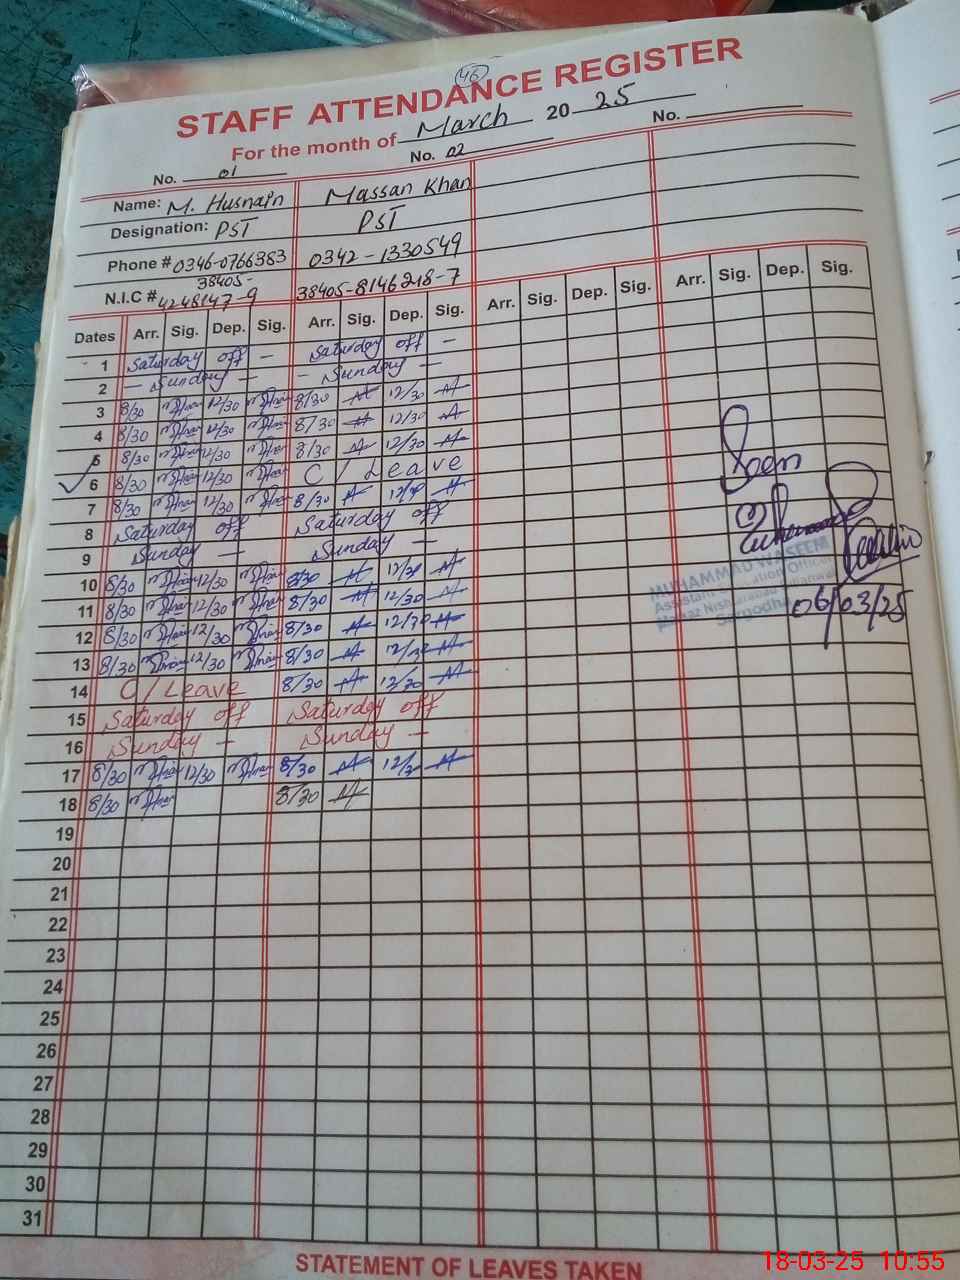 46
STAFF ATTENDANCE REGISTER
For the month of March 20 25
No. 01 No. 02 No.
Name: M. Husnain Massan Khan
Designation: PST PST
Phone # 0346-0766383 0342-1330549
N.I.C # 38405-4248147-9 38405-8146218-7
Dates Arr. Sig. Dep. Sig. Arr. Sig. Dep. Sig. Arr. Sig. Dep. Sig. Arr. Sig. Dep. Sig.
1 Saturday off - Saturday off -
2 - Sunday - - Sunday -
3 8/30 12/30 8/30 12/30
4 8/30 12/30 8/30 12/30
5 8/30 12/30 8/30 12/30
6 8/30 12/30 C/Leave
7 8/30 12/30 8/30 12/30
8 Saturday off Saturday off
9 Sunday - Sunday -
10 8/30 12/30 8/30 12/30
11 8/30 12/30 8/30 12/30
12 8/30 12/30 8/30 12/30
13 8/30 12/30 8/30 12/30
14 C/Leave 8/30 12/30
15 Saturday off Saturday off
16 Sunday - Sunday -
17 8/30 12/30 8/30 12/30
18 8/30 8/30
19
20
21
22
23
24
25
26
27
28
29
30
31
Seen
MUHAMMAD WASEEM
Assistant Education Officer
Sargodha
06/03/25
STATEMENT OF LEAVES TAKEN
18-03-25 10:55